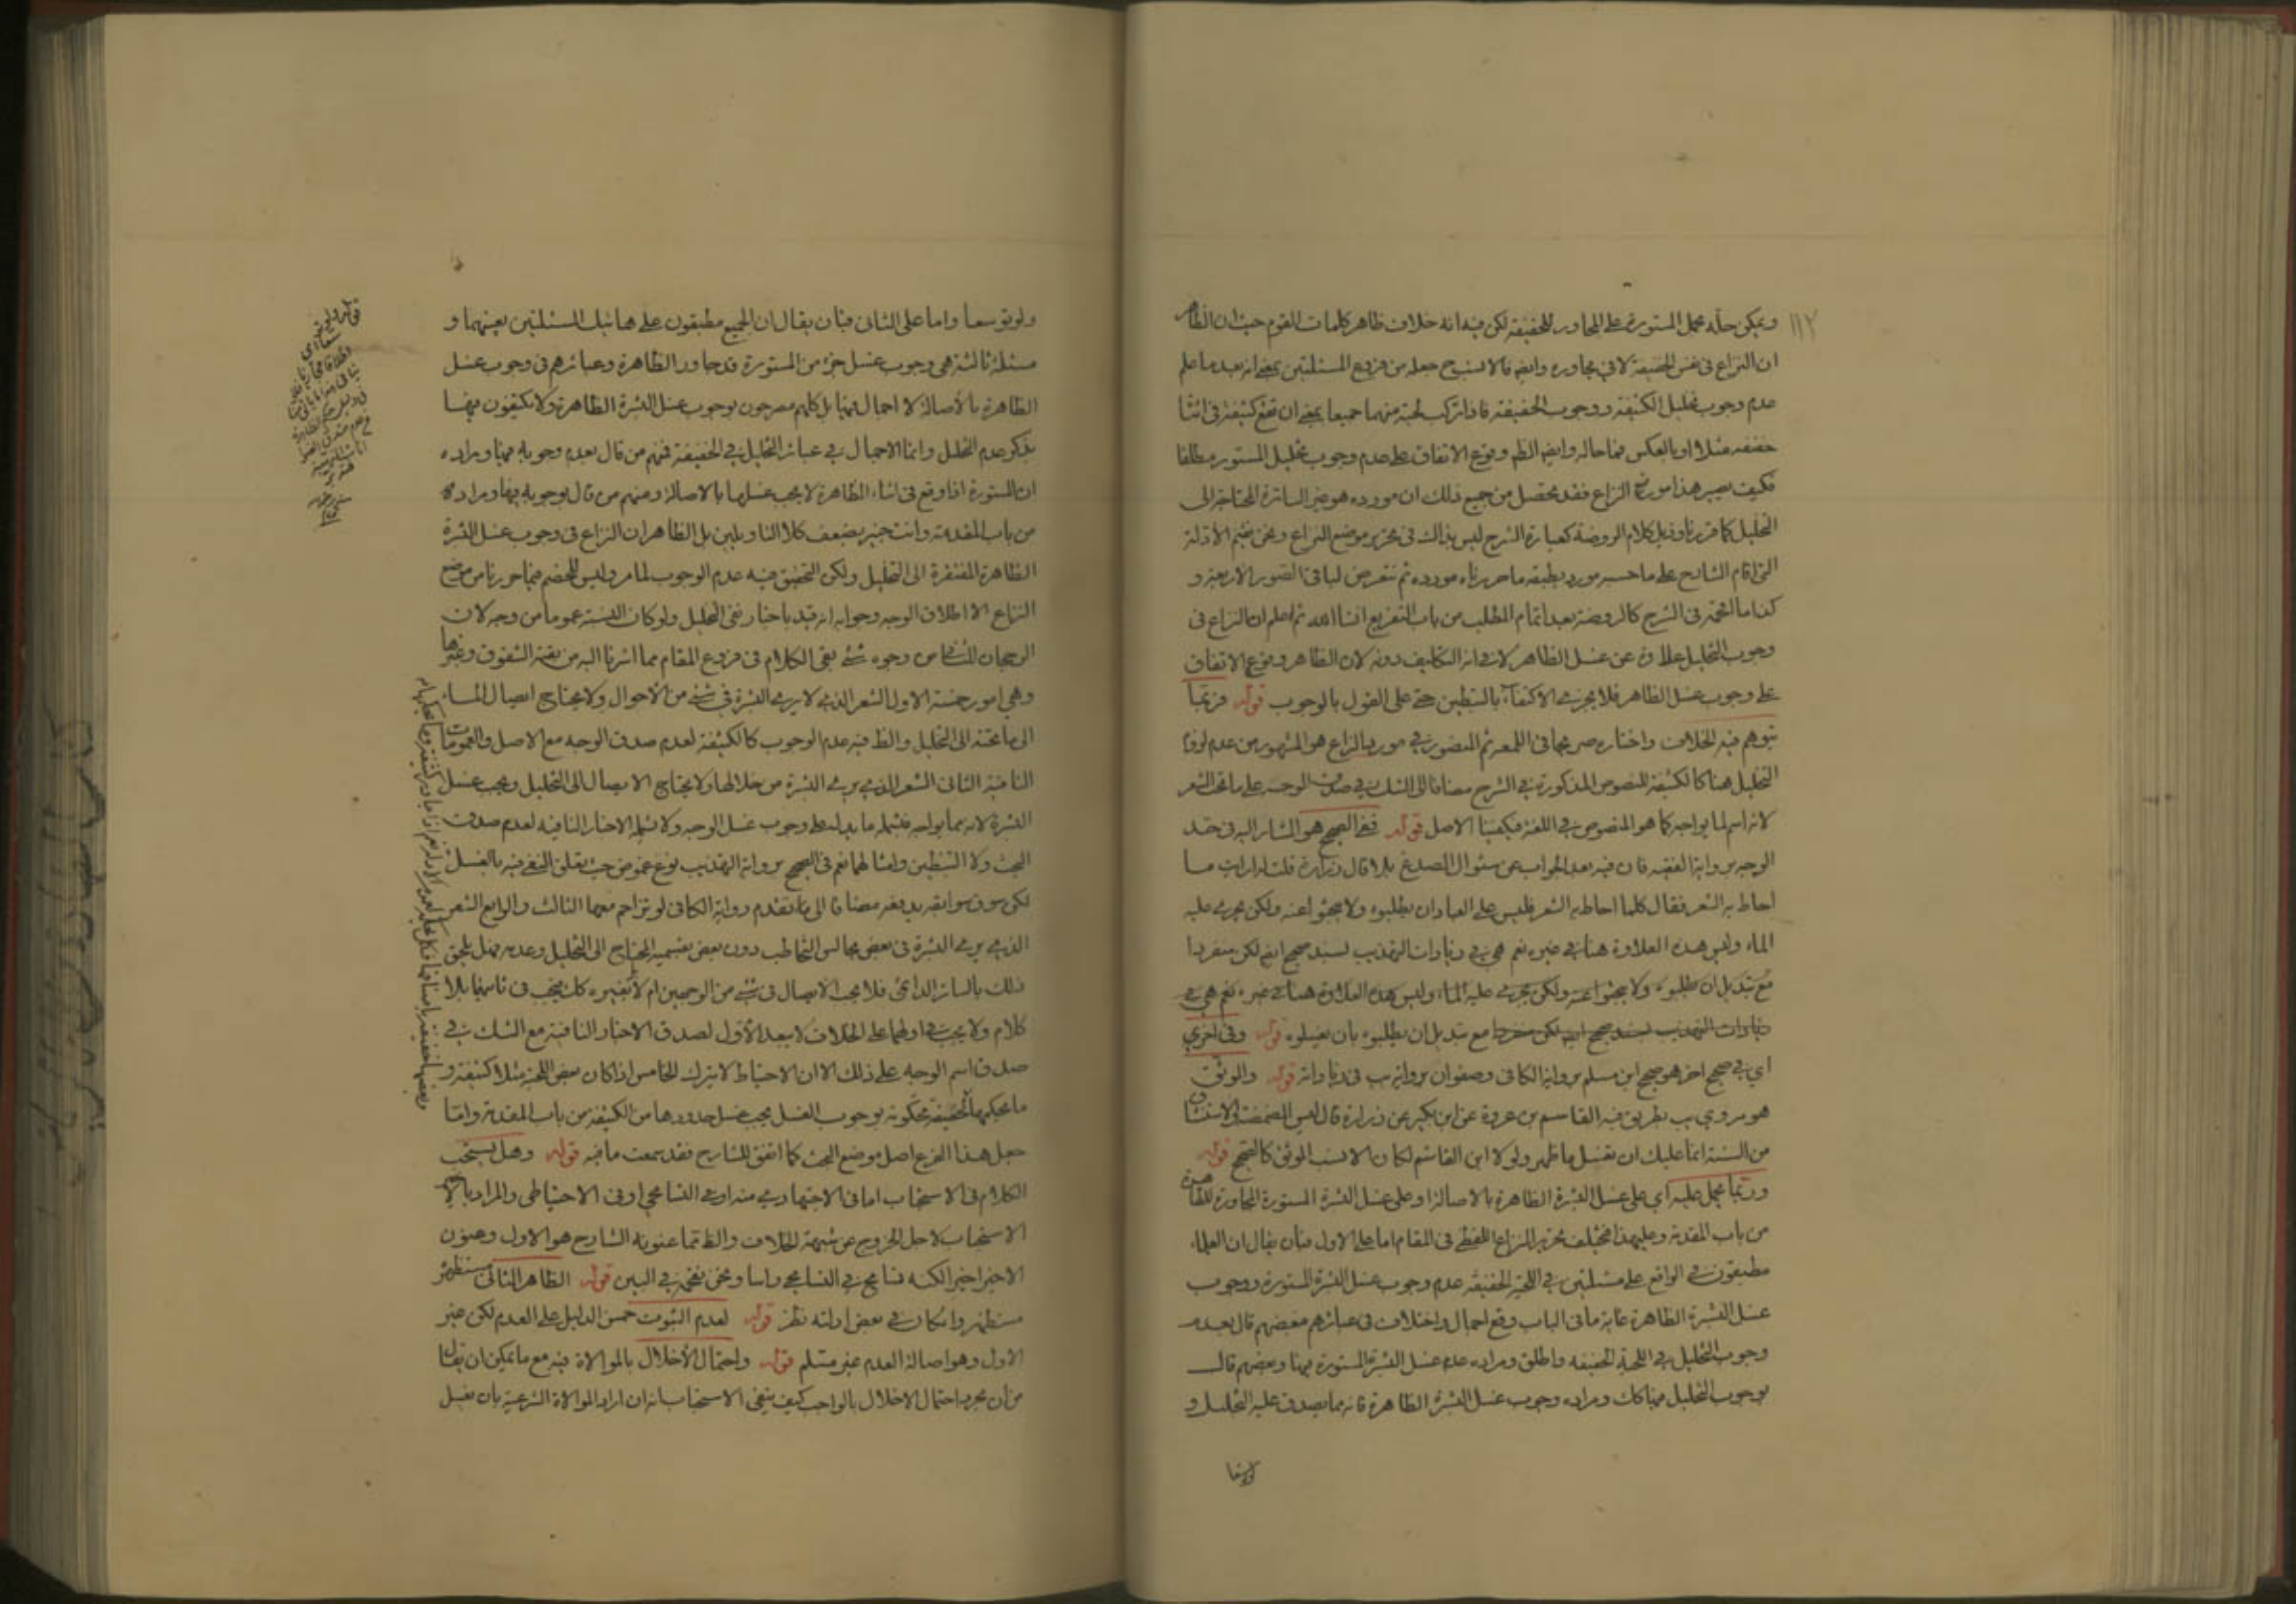 ١١٢
ويمكن حله بحمل المستورة على المجاور للخفيفة لكن فيه انه خلاف ظاهر كلمات القوم حيث ان الظاهر
ان النزاع في نفس الخفيفة لا في مجاوره وايضا فالانسب ح جعله من فروع المسئلتين بمعنى انه بعد ما علم
عدم وجوب تخليل الكثيفة ووجوب الخفيفة فاذا تركب لحية منهما جميعا بمعنى ان تقع كثيفة في اثنا
خفيفة مثلا او بالعكس فما حاله وايضا الظ وقوع الاتفاق على عدم وجوب تخليل المستور مطلقا
فكيف يصير هذا مورد النزاع فقد تحصل من جميع ذلك ان مورده هو غير الساترة المحتاجة الى
التخليل كما قررنا وذيل كلام الروضة كعبارة الشرح ليس بذاك في تحرير موضع النزاع ونحن نقيم الأدلة
التي اقام الشارح على ما حسبه مورد بطبقه ما حررناه مورده ثم نتعرض لباقي الصور الاربعة و
كذا ما اقحمه في الشرح كالروضة بعد اتمام المطلب من باب التفريع انشا الله ثم اعلم ان النزاع في
وجوب التخليل علاوة عن غسل الظاهر لا في انه التكليف دونه لان الظاهر وقوع الاتفاق
على وجوب غسل الظاهر فلا يجزي الاكتفاء بالتبطين حتى على القول بالوجوب قوله فربما
يتوهم فيه الخلاف واختاره صريحا في اللمعة ثم المنصور في مورد النزاع هو المشهور من عدم لزوم
التخليل هنا كالكثيفة للنصوص المذكورة في الشرح مضافا الى الشك في صدق الوجه على ما تحت الشعر
لانه اسم لما يواجه كما هو المنصوص في اللغة فيكفينا الاصل قوله ففي الصحيح هو المشار اليه في حد
الوجه برواية الفقيه فان فيه بعد الجواب عن سئوال الصدغ بلا قال زرارة قلت ارايت ما
احاط به الشعر فقال كلما احاط به الشعر فليس على العباد ان يطلبوه ولا يبحثوا عنه ولكن يجرى عليه
الماء وليس هذه العلاوة هنا في غيره نعم هي في زيادات التهذيب بسند صحيح ايضا لكن منفردا
مع تبديل ان يطلبوه ولا يبحثوا عنه ولكن يجرى عليه الماء وليس هذه العلاوة هنا في غيره نعم هي في
زيادات التهذيب بسند صحيح ايضا لكن منفردا مع تبديل ان يطلبوه بان يغسلوه قوله وفي اخرى
اي في صحيح اخر هو صحيح ابن مسلم برواية الكافي وصفوان برواية يب في زياداته قوله والموثق
هو مروي يب بطريق فيه القاسم بن عروة عن ابن بكير عن زرارة قال ليس المضمضة والاستنشاق
من السنة انما عليك ان تغسل ما ظهر ولولا ابن القاسم لكان الانسب الموثق كالصحيح قوله
وربما يحمل عليه اي على غسل البشرة الظاهرة بالاصالة او على غسل البشرة المستورة المجاورة للظاهرة
من باب المقدمة وعليهذا فيختلف تحرير النزاع اللفظي في المقام اما على الاول فبان يقال ان العلماء
مطبقون في الواقع على مسئلتين في اللحية الخفيفة عدم وجوب غسل البشرة المستورة ووجوب
غسل البشرة الظاهرة غاية ما في الباب وقع اجمال واختلاف في عبائرهم فبعضهم قال بعدم
وجوب التخليل في اللحية الخفيفة واطلق ومراده عدم غسل البشرة المستورة فيها وبعضهم قال
بوجوب التخليل فيها كك ومراده وجوب غسل البشرة الظاهرة فانه مما يصدق عليه التخليل و
ولوتوسعا
ولو توسعا واما على الثاني فبان يقال ان الجميع مطبقون على هاتيك المسئلتين بعينهما و
مسئلة ثالثة هي وجوب غسل جزء من المستورة قد جاور الظاهرة وعبائرهم في وجوب غسل
الظاهرة بالأصالة لا اجمال فيها بل كلهم مصرحون بوجوب غسل البشرة الظاهرة ولا يكتفون فيها
بذكر عدم التخليل وانما الاجمال في عبائر التخليل في الخفيفة فمنهم من قال بعدم وجوبه فيها ومراده
ان المستورة اذا وقع في اثناء الظاهرة لا يجب غسلها بالاصالة ومنهم من قال بوجوبه فيها ومراده
من باب المقدمة وانت خبير بضعف كلا التاويلين بل الظاهر ان النزاع في وجوب غسل البشرة
الظاهرة المفتقرة الى التخليل ولكن التحقيق فيه عدم الوجوب لما مر وليس للخصم فيما حررنا من موضع
النزاع الا اطلاق الوجه وجوابه انه قيد باخبار نفي التخليل ولو كان النسبة عموما من وجه لان
الرجحان للثاني من وجوه شتى بقي الكلام في فروع المقام مما اشرنا اليه من بقية الشقوق وغيرها
وهي امور خمسة الاول الشعر الذي لا يرى البشرة في شئ من الأحوال ولا يحتاج ايصال الماء
الى ما تحته الى التخليل والظ فيه عدم الوجوب كالكثيفة لعدم صدق الوجه مع الاصل والعمومات
النافية الثاني الشعر الذي يرى البشرة من خلالها ولا يحتاج الايصال الى التخليل ويجب غسل
البشرة لانه مما يواجه فيشمله ما يدل على وجوب غسل الوجه ولا يشمله الاخبار النافية لعدم صدق
البحث ولا التبطين وامثالهما نعم في الصحيح برواية التهذيب نوع غموض حيث تعلق النفي فيه بالغسل
لكن سوق سوابقه يدفعه مضافا الى ما تقدم رواية الكافي لو تزاحم معها الثالث والرابع الشعر
الذي يرى البشرة في بعض مجالس التخاطب دون بعض بقسميه المحتاج الى التخليل وعدمه فهل يلحق
ذلك بالساتر الدائمي فلا يجب الايصال في شئ من الوجهين ام لا كغيره كك فيجب في ثانيهما بلا
كلام ولا يجب في اولهما على الخلاف لا يبعد الأول لصدق الاخبار النافية مع الشك في
صدق اسم الوجه على ذلك الا ان الاحتياط لا يترك الخامس اذا كان بعض اللحية مثلا كثيفة و
ما بحكمها لخفيفة محكومة بوجوب الغسل يجب غسل حدودها من الكثيفة من باب المقدمة واما
جعل هذا الفرع اصل موضع البحث كما اتفق للشارح فقد سمعت ما فيه قوله وهل يستحب
الكلام في الاستحباب اما في الاجتهادي منه او في التسامحي او في الاحتياطي والمراد بالاخير
الاستحباب لاجل الخروج عن شبهة الخلاف والظ مما عنونه الشارح هو الاول وعنون
الاخير اخيرا لكنه تسامح في التسامحي راسا ونحن نقحمه في البين قوله الظاهر الثاني مستظهر
مستظهر وان كان في بعض ادلته نظر قوله لعدم الثبوت حسن الدليل على العدم لكن غير
الاول وهو اصالة العدم غير مسلم قوله واحتمال الأخلال بالموالاة فيه مع ما يمكن ان يقال
من ان مجرد احتمال الاخلال بالواجب كيف ينفي الاستحباب انه ان اراد الموالاة الشرعية بان يغسل